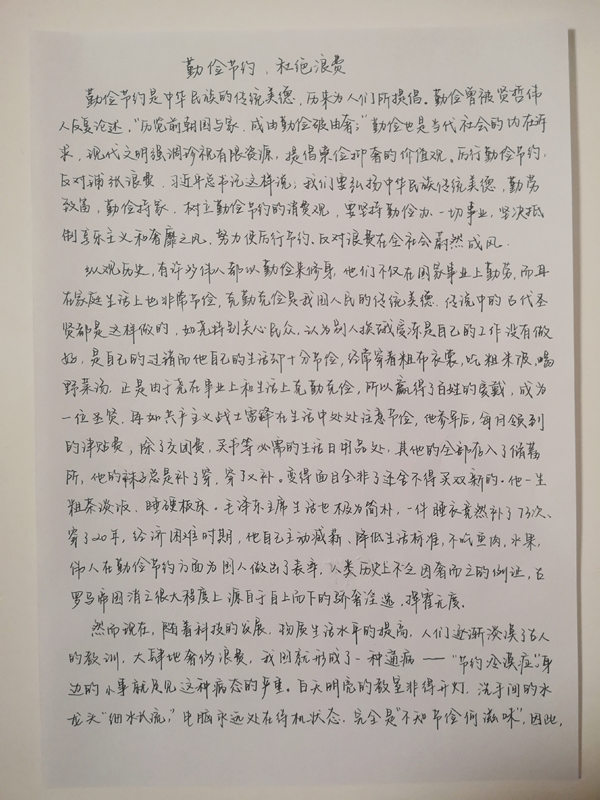 勤俭节约，杜绝浪费
勤俭节约是中华民族的传统美德，历来为人们所提倡。勤俭曾被贤哲伟
人反复论述，“历览前朝国与家，成由勤俭破由奢；”勤俭也是当代社会的内在需
求，现代文明强调珍视有限资源，提倡崇俭抑奢的价值观。厉行勤俭节约，
反对铺张浪费，习近平总书记这样说；我们要弘扬中华民族传统美德，勤劳
致富，勤俭持家，树立勤俭节约的消费观，要坚持勤俭办一切事业，坚决抵
制享乐主义和奢靡之风，努力使厉行节约、反对浪费在全社会蔚然成风。
纵观历史，有许多伟人都以勤俭来修身，他们不仅在国家事业上勤劳，而且
在家庭生活上也非常节俭，克勤克俭是我国人民的传统美德，传说中的古代圣
贤都是这样做的，如尧特别关心民众，认为别人挨饿受冻是自己的工作没有做
好，是自己的过错而他自己的生活却十分节俭，经常穿着粗布衣裳，吃粗米饭，喝
野菜汤，正是由于尧在事业上和生活上克勤克俭，所以赢得了百姓的爱戴，成为
一位圣贤，再如共产主义战士雷锋在生活中处处注意节俭，他参军后，每月领到
的津贴费，除了交团费，买书等必需的生活日用品处，其他的全部存入了储蓄
所，他的袜子总是补了穿，穿了又补。变得面目全非了还舍不得买双新的。他一生
粗茶淡饭、睡硬板床。毛泽东主席生活也极为简朴，一件睡衣竟然补了73次、
穿了20年，经济困难时期，他自己主动减薪、降低生活标准，不吃鱼肉，水果，
伟人在勤俭节约方面为国人做出了表率，人类历史上不乏因奢而亡的例证，古
罗马帝国消亡很大程度上源自于自上而下的骄奢淫逸，挥霍无度。
然而现在，随着科技的发展，物质生活水平的提高，人们逐渐淡漠了古人
的教训，大肆地奢侈浪费，我国就形成了一种通病——“节约冷漠症”，身
边的小事就足见这种病态的严重。白天明亮的教室非得开灯，洗手间的水
龙头“细水长流，”电脑永远处在待机状态，完全是“不知节俭何滋味”，因此，